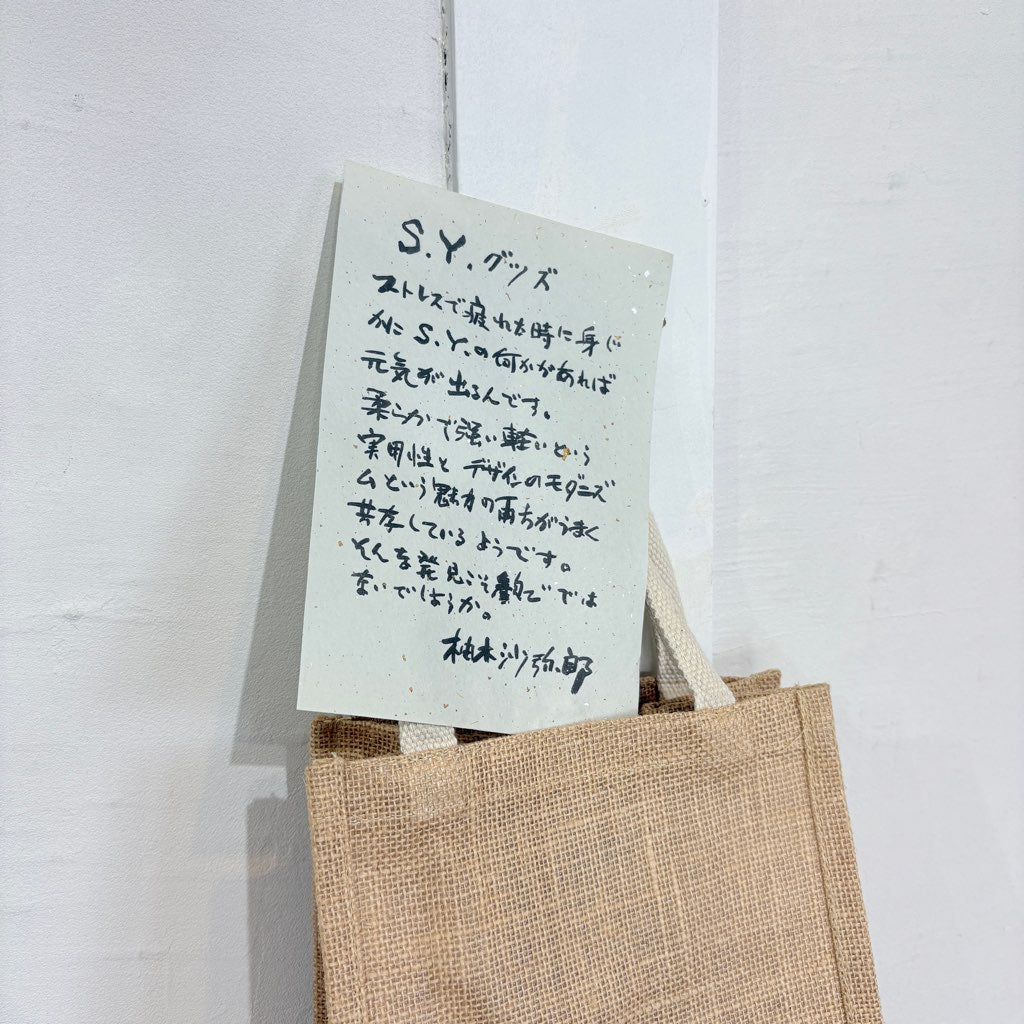 S.Y.グッズ
ストレスで疲れた時に身じ
かに S.Y.の何かがあれば
元気が出るんです。
柔らかで強い軽いという
実用性と デザインのモダニズ
ムという魅力の両方がうまく
共存しているようです。
そんな発見こそ素的では
ないでしょうか。
柚木沙弥郎